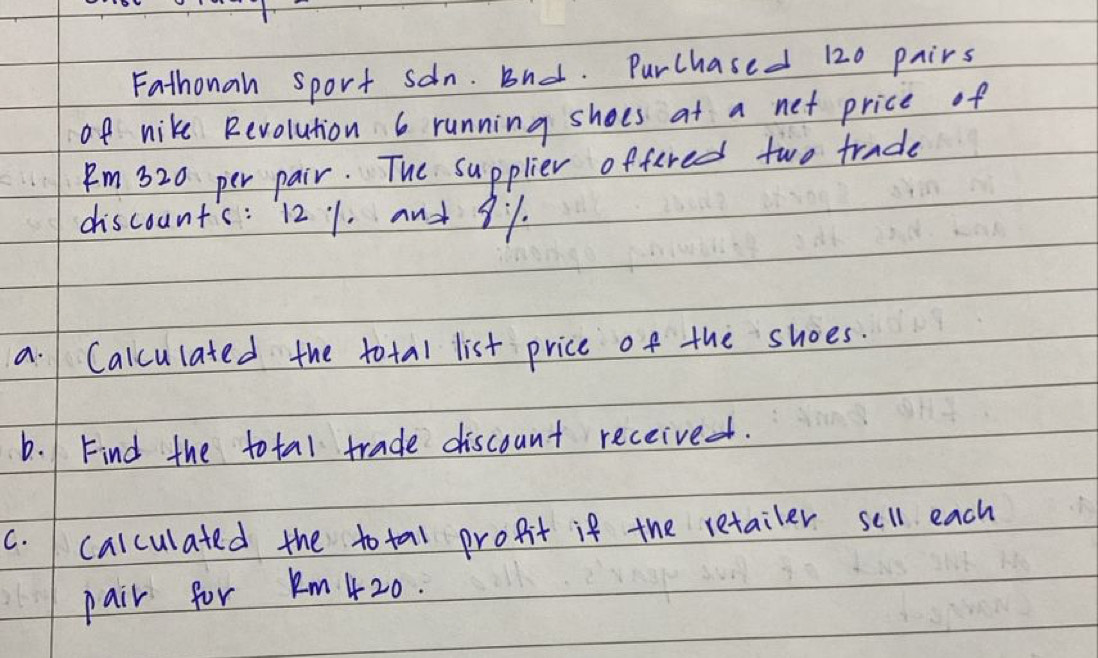 Fathonah sport sdn. Bnd. Purchased 120 pairs
of nike Revolution 6 running shoes at a net price of
Rm 320 per pair. The supplier offered two trade
discounts: 12 % and 8%
a. Calculated the total list price of the shoes.
b. Find the total trade discount received.
c. calculated the total profit if the retailer sell each
pair for Rm 420.